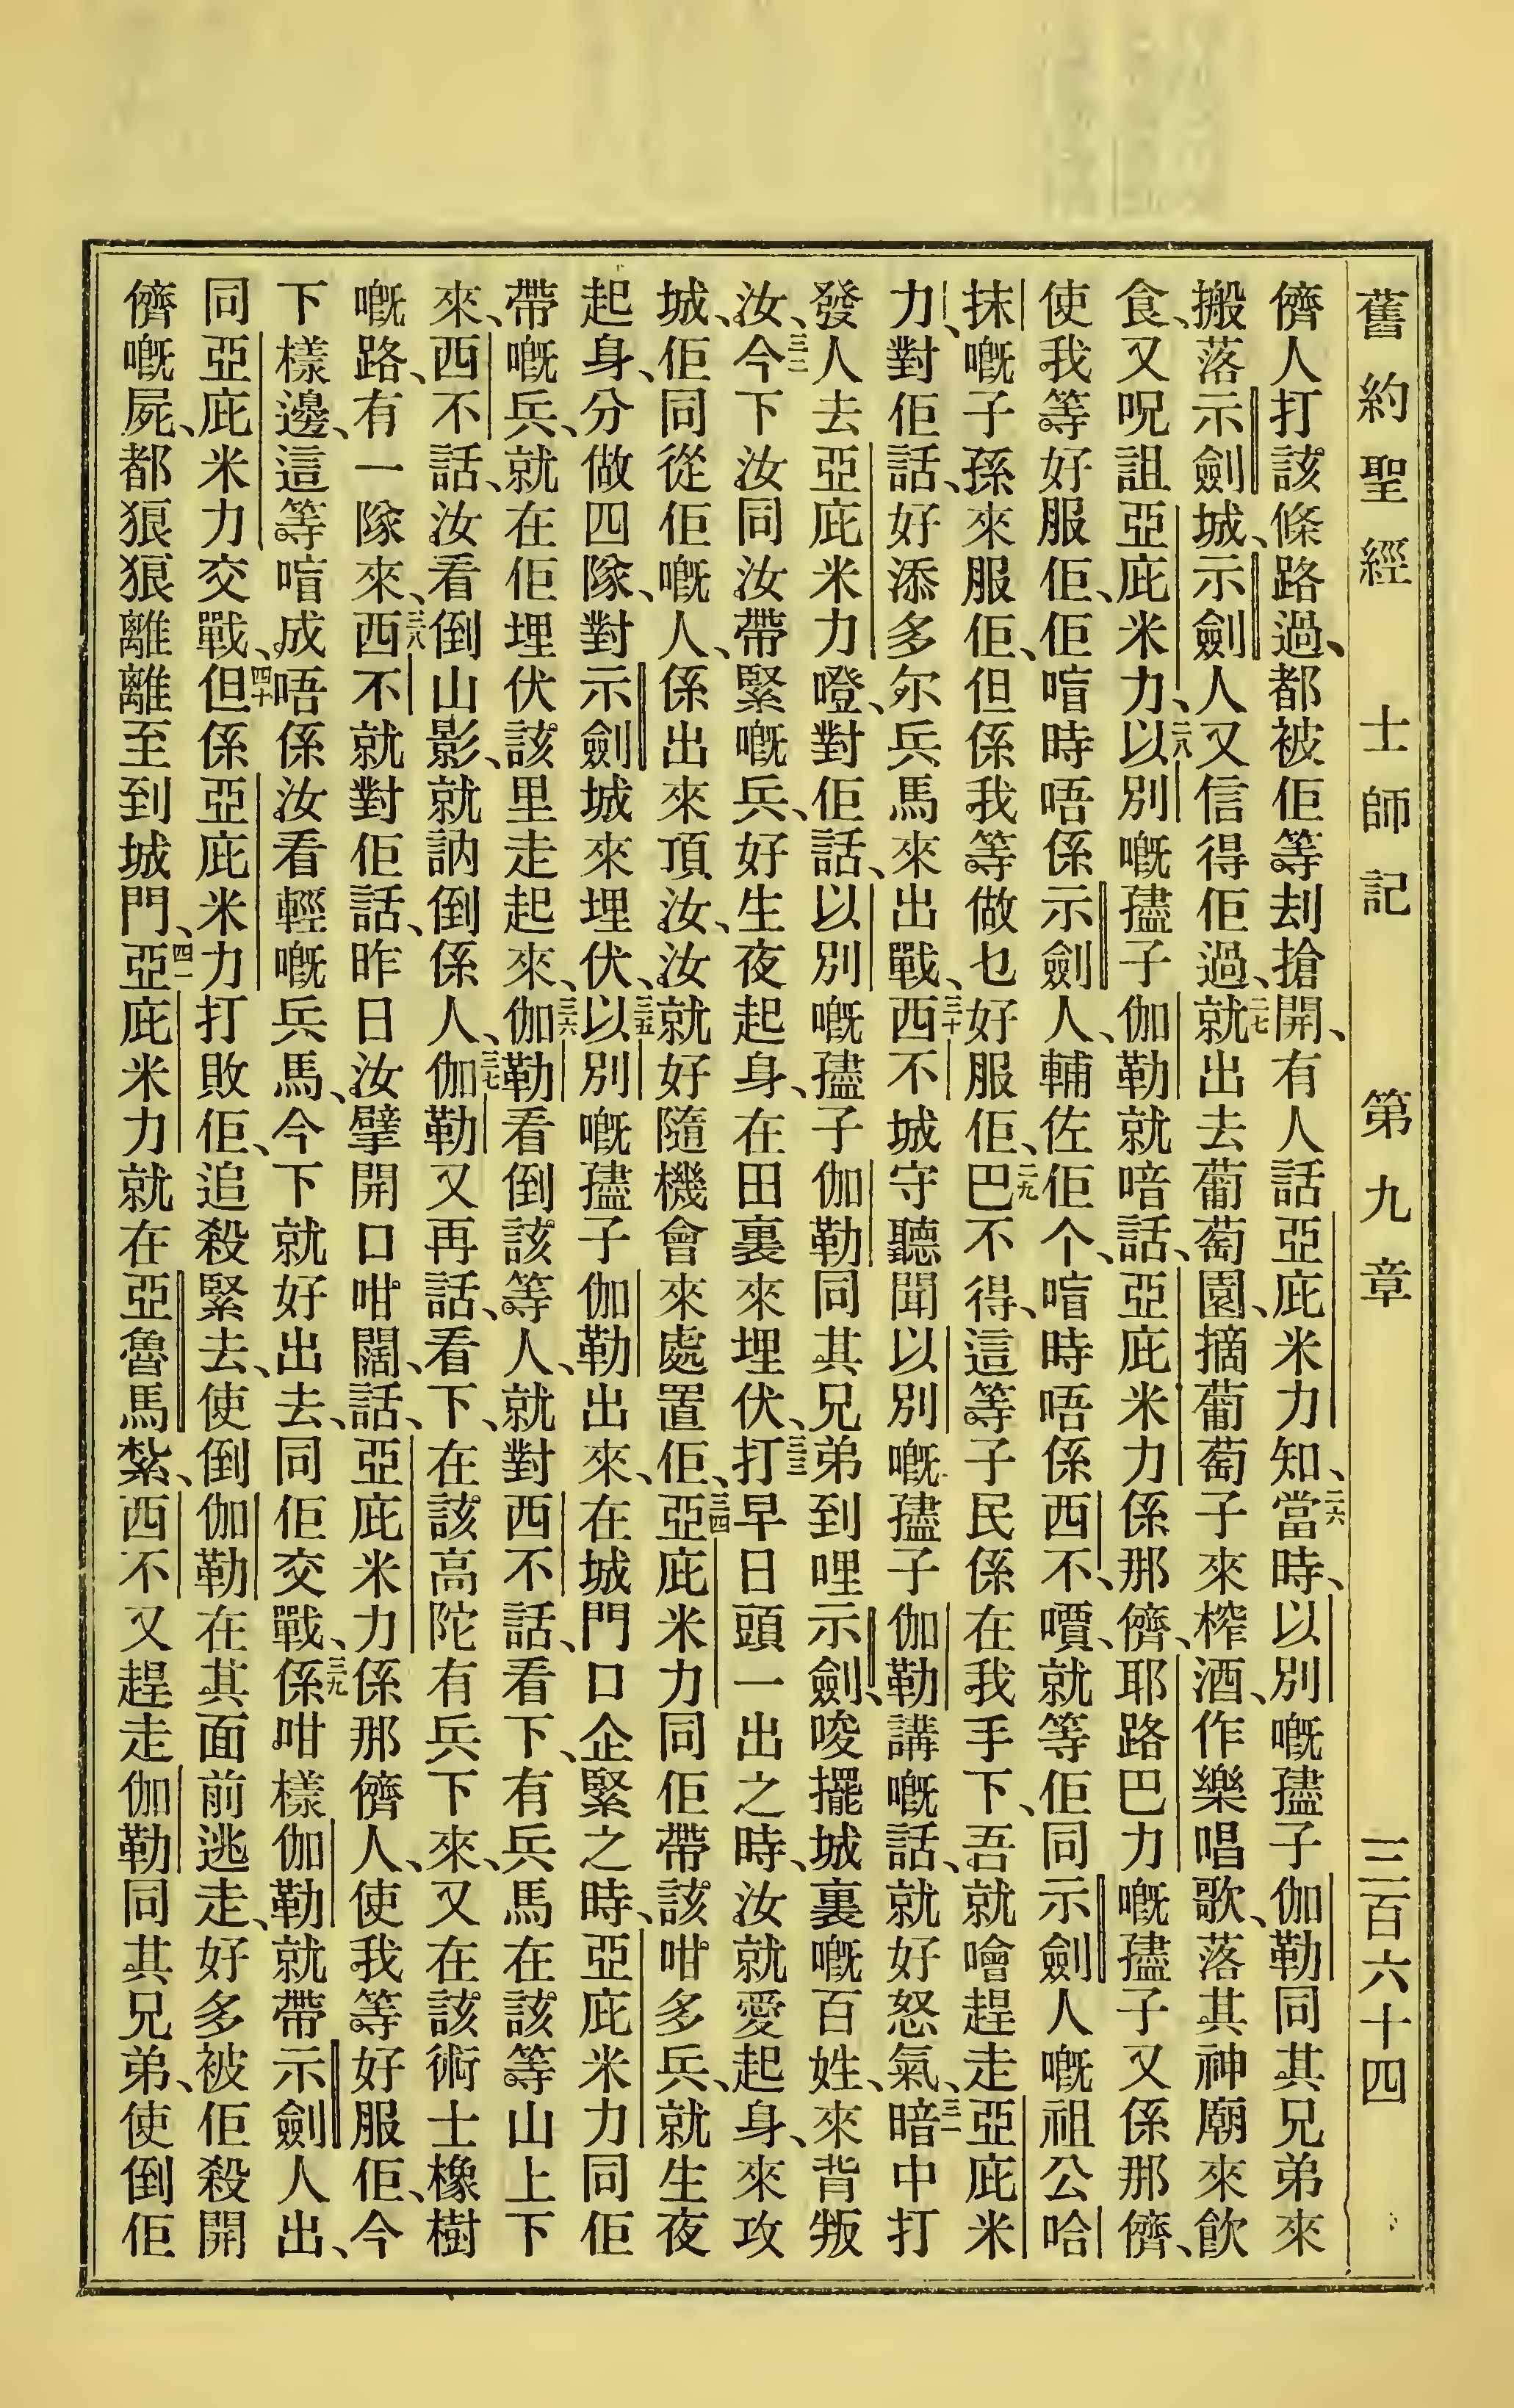 舊約聖經 士師記 第九章 三百六十四
儕人打該條路過、都被佢等刦搶開、有人話亞庇米力知、二六當時、以別嘅孻子伽勒同其兄弟來
搬落示劍城、示劍人又信得佢過、二七就出去葡萄園、摘葡萄子來榨酒、作樂唱歌、落其神廟來飮
食、又呪詛亞庇米力、二八以別嘅孻子伽勒就喑話、亞庇米力係那儕、耶路巴力嘅孻子又係那儕、
使我等好服佢、佢喧時唔係示劍人、輔佐佢个、喧時唔係西不、嘪、就等佢同示劍人嘅祖公哈
抹嘅子孫來服佢、但係我等做乜好服佢、二九巴不得、這等子民係在我手下、吾就噲趕走亞庇米
力、對佢話、好添多尔兵馬來出戰、三十西不城守聽聞以別嘅孻子伽勒講嘅話、就好怒氣、三一暗中打
發人去亞庇米力嶝、對佢話、以別嘅孻子伽勒同其兄弟到哩示劍、唆擺城裏嘅百姓、來背叛
汝、三二今下汝同汝帶緊嘅兵、好生夜起身、在田裏來埋伏、三三打早日頭一出之時、汝就愛起身、來攻
城、佢同從佢嘅人、係出來頂汝、汝就好隨機會來處置佢、三四亞庇米力同佢帶該咁多兵、就生夜
起身、分做四隊、對示劍城來埋伏、三五以別嘅孻子伽勒出來、在城門口企緊之時、亞庇米力同佢
帶嘅兵、就在佢埋伏該里走起來、三六伽勒看倒該等人、就對西不話、看下、有兵馬在該等山上下
來、西不話、汝看倒山影、就訥倒係人、三七伽勒又再話、看下、在該高陀有兵下來、又在該術士橡樹
嘅路、有一隊來、三八西不就對佢話、昨日汝擘開口咁闊、話、亞庇米力係那儕人、使我等好服佢、今
下樣邊、這等喧成唔係汝看輕嘅兵馬、今下就好出去、同佢交戰、三九係咁樣伽勒就帶示劍人出、
同亞庇米力交戰、四十但係亞庇米力打敗佢、追殺緊去、使倒伽勒在其面前逃走、好多被佢殺開
儕嘅屍、都狼狼離離至到城門、四一亞庇米力就在亞魯馬紮、西不又趕走伽勒同其兄弟、使倒佢